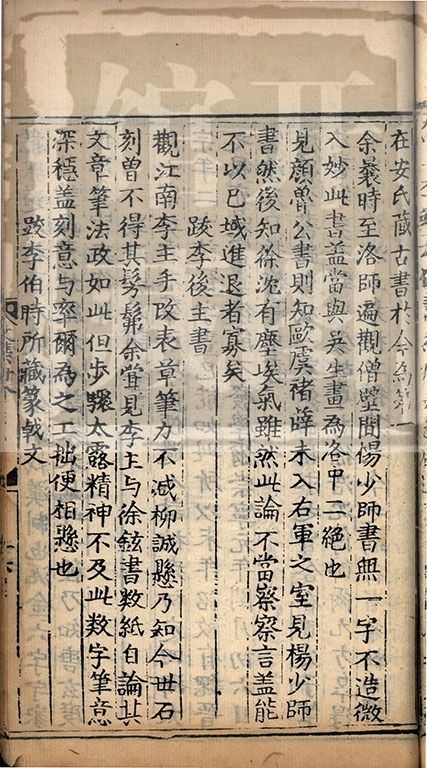 在安氏藏古書於今為第一
余曩時至洛師遍觀僧壁間楊少師書無一字不造微
入妙此書蓋當與吳生畫為洛中二絶也
見顏魯公書則知歐虞褚薛未入右軍之室見楊少師
書然後知徐沈有塵埃氣雖然此論不當察察言蓋能
不以已域進退者寡矣
跋李後主書
觀江南李主手改表草筆力不減柳誠懸乃知今世石
刻曾不得其髣髴余嘗見李主与徐鉉書數紙自論其
文章筆法政如此但步驟太露精神不及此數字筆意
深穩盖刻意与率爾為之工拙便相懸也
跋李伯時所藏篆戟文